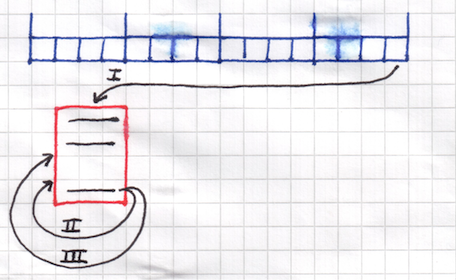 I
II
III